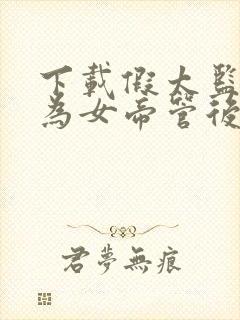 下載假太監
為女帝管後
君夢無痕